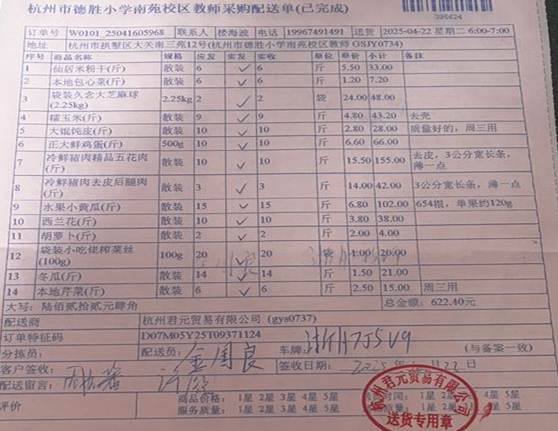 杭州市德胜小学南苑校区教师采购配送单(已完成)
390424
订单号 W0101_25041605968 联系人 楼海波 电话 19967491491 送货 2025-04-22 星期二 6:00-7:00
地址 杭州市拱墅区大关南三苑12号(杭州市德胜小学南苑校区教师 GSJY0734)
序号 商品名称 规格 应发 实发 实收 单位 单价 小计 备注
1 仙居米粉干(斤) 散装 6 ✓ 6 斤 5.50 33.00
2 本地包心菜(斤) 散装 6 ✓ 6 斤 1.20 7.20
3 袋装久念大芝麻球(2.25kg) 2.25kg 2 ✓ 2 袋 24.00 48.00
4 糯玉米(斤) 散装 9 ✓ 9 斤 4.80 43.20 去壳
5 大馄饨皮(斤) 散装 10 ✓ 10 斤 2.80 28.00 质量好的，周三用
6 正大鲜鸡蛋(斤) 500g 10 ✓ 10 斤 6.60 66.00
7 冷鲜猪肉精品五花肉(斤) 散装 10 ✓ 10 斤 15.50 155.00 去皮，3公分宽长条，薄一点
8 冷鲜猪肉去皮后腿肉(斤) 散装 3 ✓ 3 斤 14.00 42.00 3公分宽长条，薄一点
9 水果小黄瓜(斤) 散装 15 ✓ 15 斤 6.80 102.00 654根，单果约120g
10 西兰花(斤) 散装 10 ✓ 10 斤 3.80 38.00
11 胡萝卜(斤) 散装 2 ✓ 2 斤 2.00 4.00
12 袋装小吃佬榨菜丝(100g) 100g 20 20 袋 1.00 20.00
13 冬瓜(斤) 散装 14 ✓ 14 斤 1.50 21.00
14 本地芹菜(斤) 散装 6 ✓ 6 斤 2.50 15.00 周三用
大写：陆佰贰拾贰元肆角 总金额：622.40元
配送商 杭州君元贸易有限公司 (gys0737)
订单特征码 D07M05Y25T09371124
分拣员： 配送员： 金国良 车牌： (与备案一致)
客户签收： 签收日期：
配送留言：
评价 商品价格： 1星 2星 3星 4星 5星
服务质量： 1星 2星 3星 4星 5星
杭州君元贸易有限公司
送货专用章